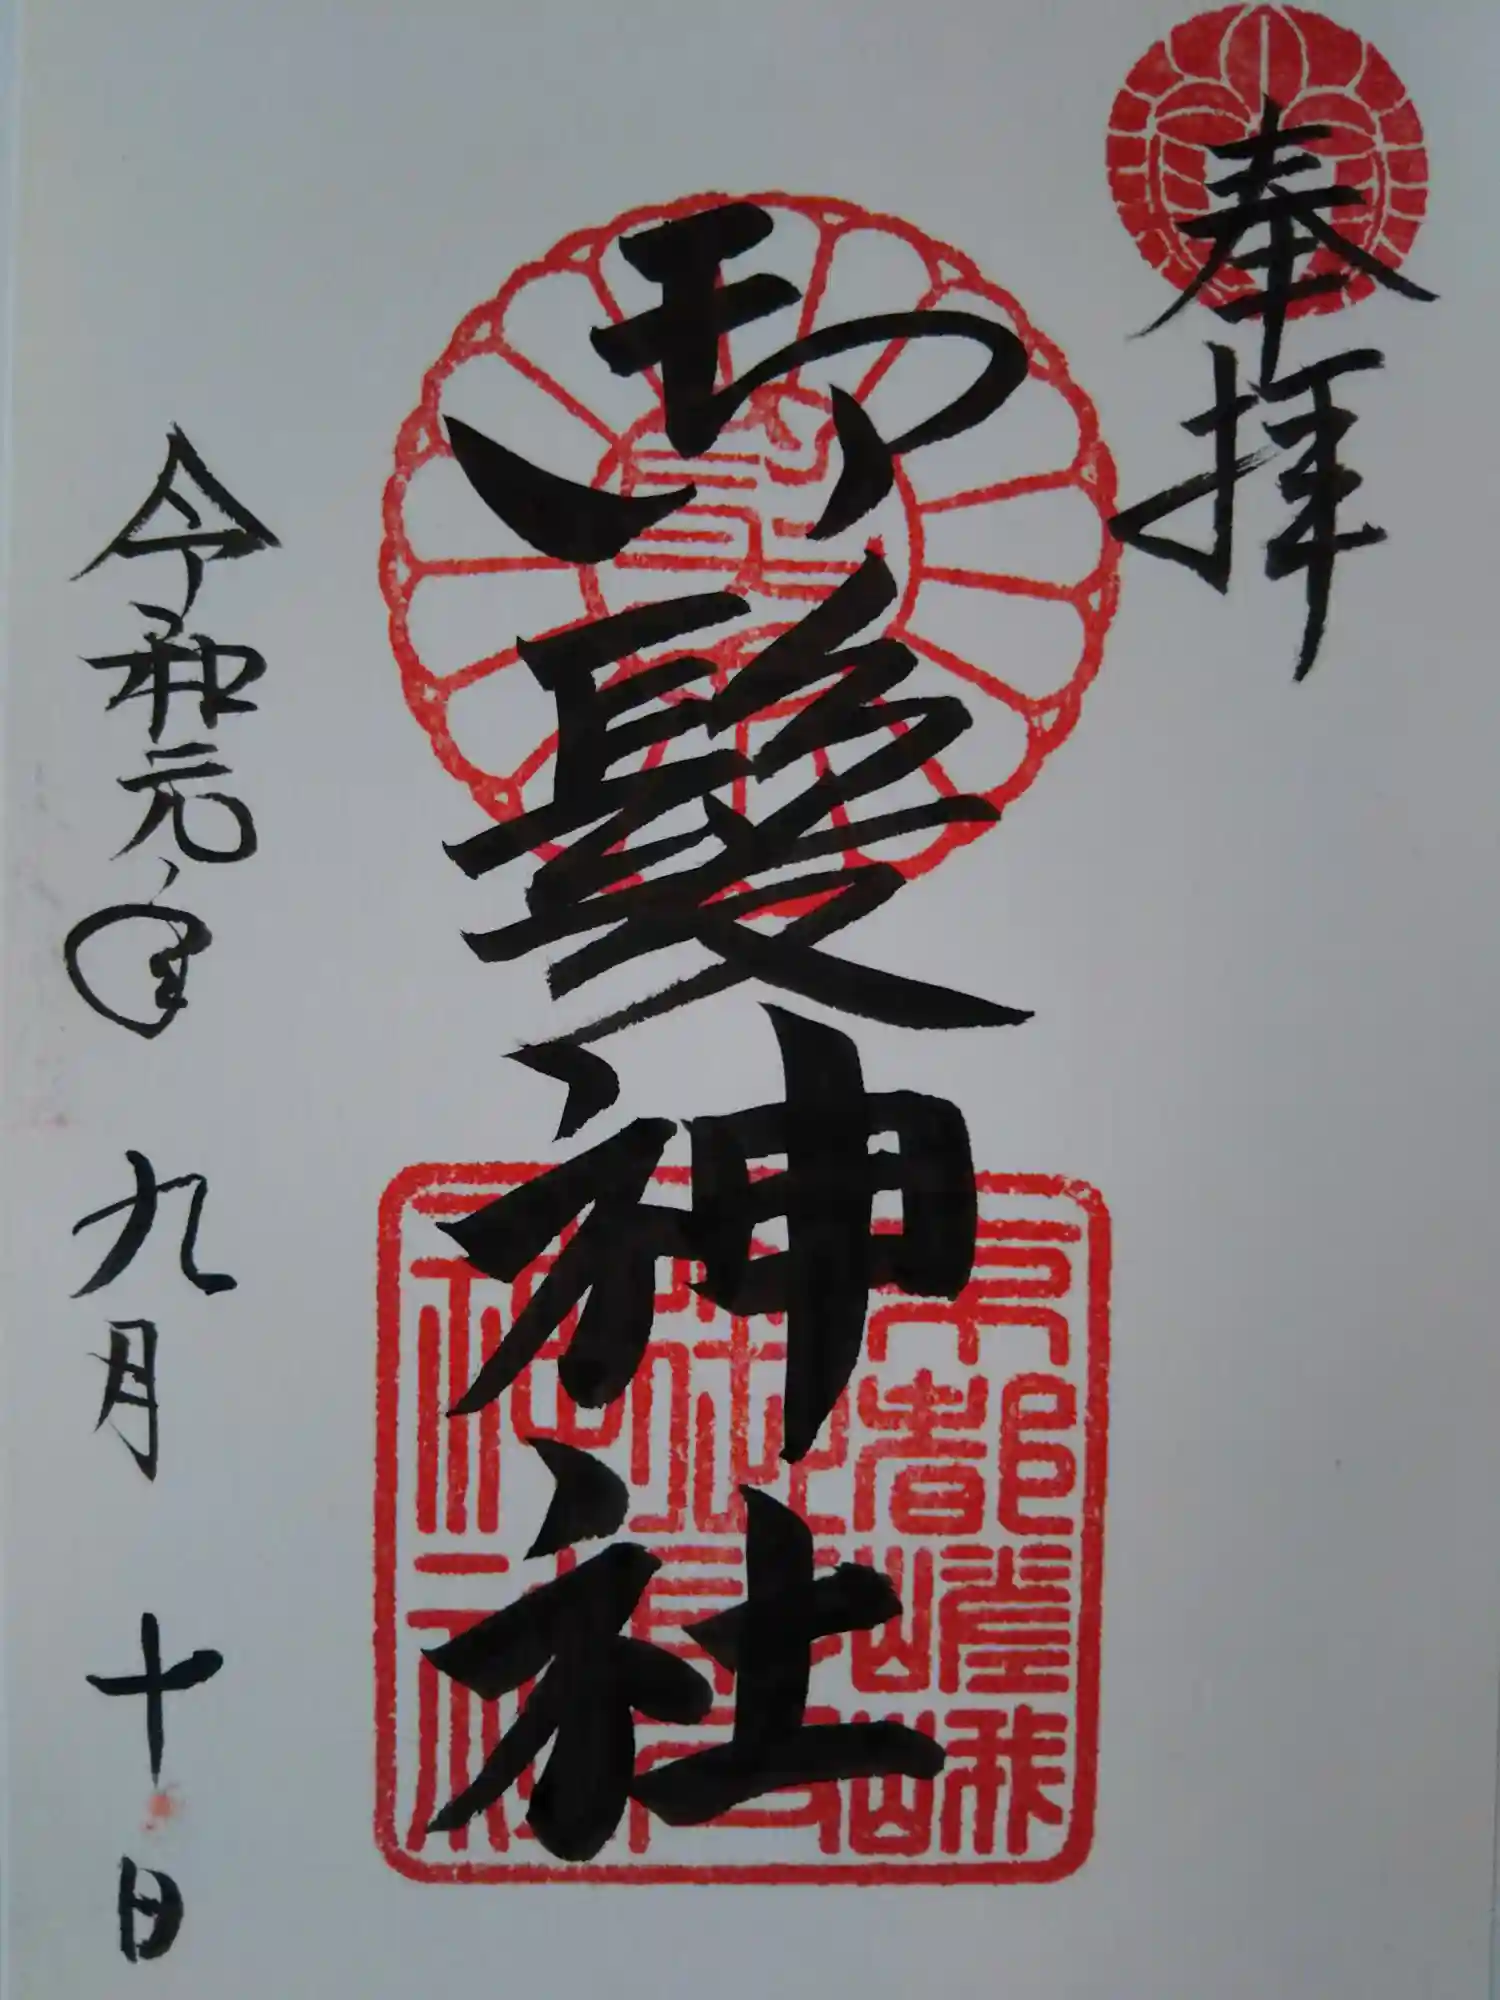 奉拝
御髪神社
令和元年 九月 十日